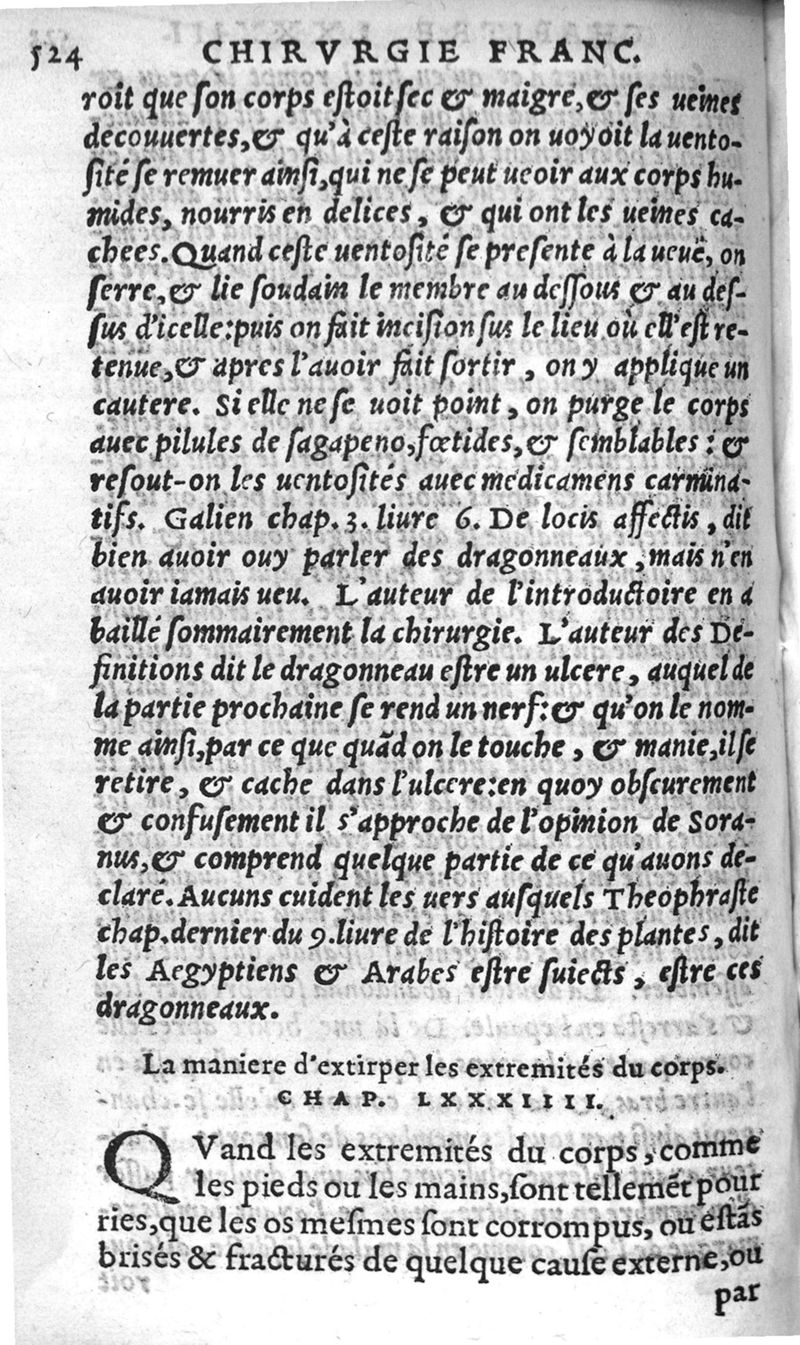 524 CHIRVRGIE FRANC.
roit que ſon corps eſtoit ſec & maigre, & ſes ueines
decouuertes, & qu'à ceſte raiſon on uoyoit la uento-
ſité ſe remuer ainſi, qui ne ſe peut ueoir aux corps hu-
mides, nourris en delices, & qui ont les ueines ca-
chees. Quand ceſte uentoſité ſe preſente à la ueuë, on
ſerre, & lie ſoudain le membre au deſſous & au deſ-
ſus d'icelle: puis on fait inciſion ſus le lieu où ell'eſt re-
tenue, & apres l'auoir fait ſortir, on y applique un
cautere. Si elle ne ſe uoit point, on purge le corps
auec pilules de ſagapeno, fœtides, & ſemblables: &
reſout-on les uentoſités auec medicamens carmina-
tifs. Galien chap. 3. liure 6. De locis affectis, dit
bien auoir ouy parler des dragonneaux, mais n'en
auoir iamais ueu. L'auteur de l'introductoire en a
baillé ſommairement la chirurgie. L'auteur des De-
finitions dit le dragonneau eſtre un ulcere, auquel de
la partie prochaine ſe rend un nerf: & qu'on le nom-
me ainſi, par ce que quãd on le touche, & manie, il ſe
retire, & cache dans l'ulcere: en quoy obſcurement
& confuſement il s'approche de l'opinion de Sora-
nus, & comprend quelque partie de ce qu'auons de-
claré. Aucuns cuident les uers auſquels Theophraſte
chap. dernier du 9. liure de l'hiſtoire des plantes, dit
les Aegyptiens & Arabes eſtre ſuiects, eſtre ces
dragonneaux.
La maniere d'extirper les extremités du corps.
CHAP. LXXXIIII.
QVand les extremités du corps, comme
les pieds ou les mains, ſont tellemẽt pour
ries, que les os meſmes ſont corrompus, ou eſtãs
briſés & fracturés de quelque cauſe externe, ou
par